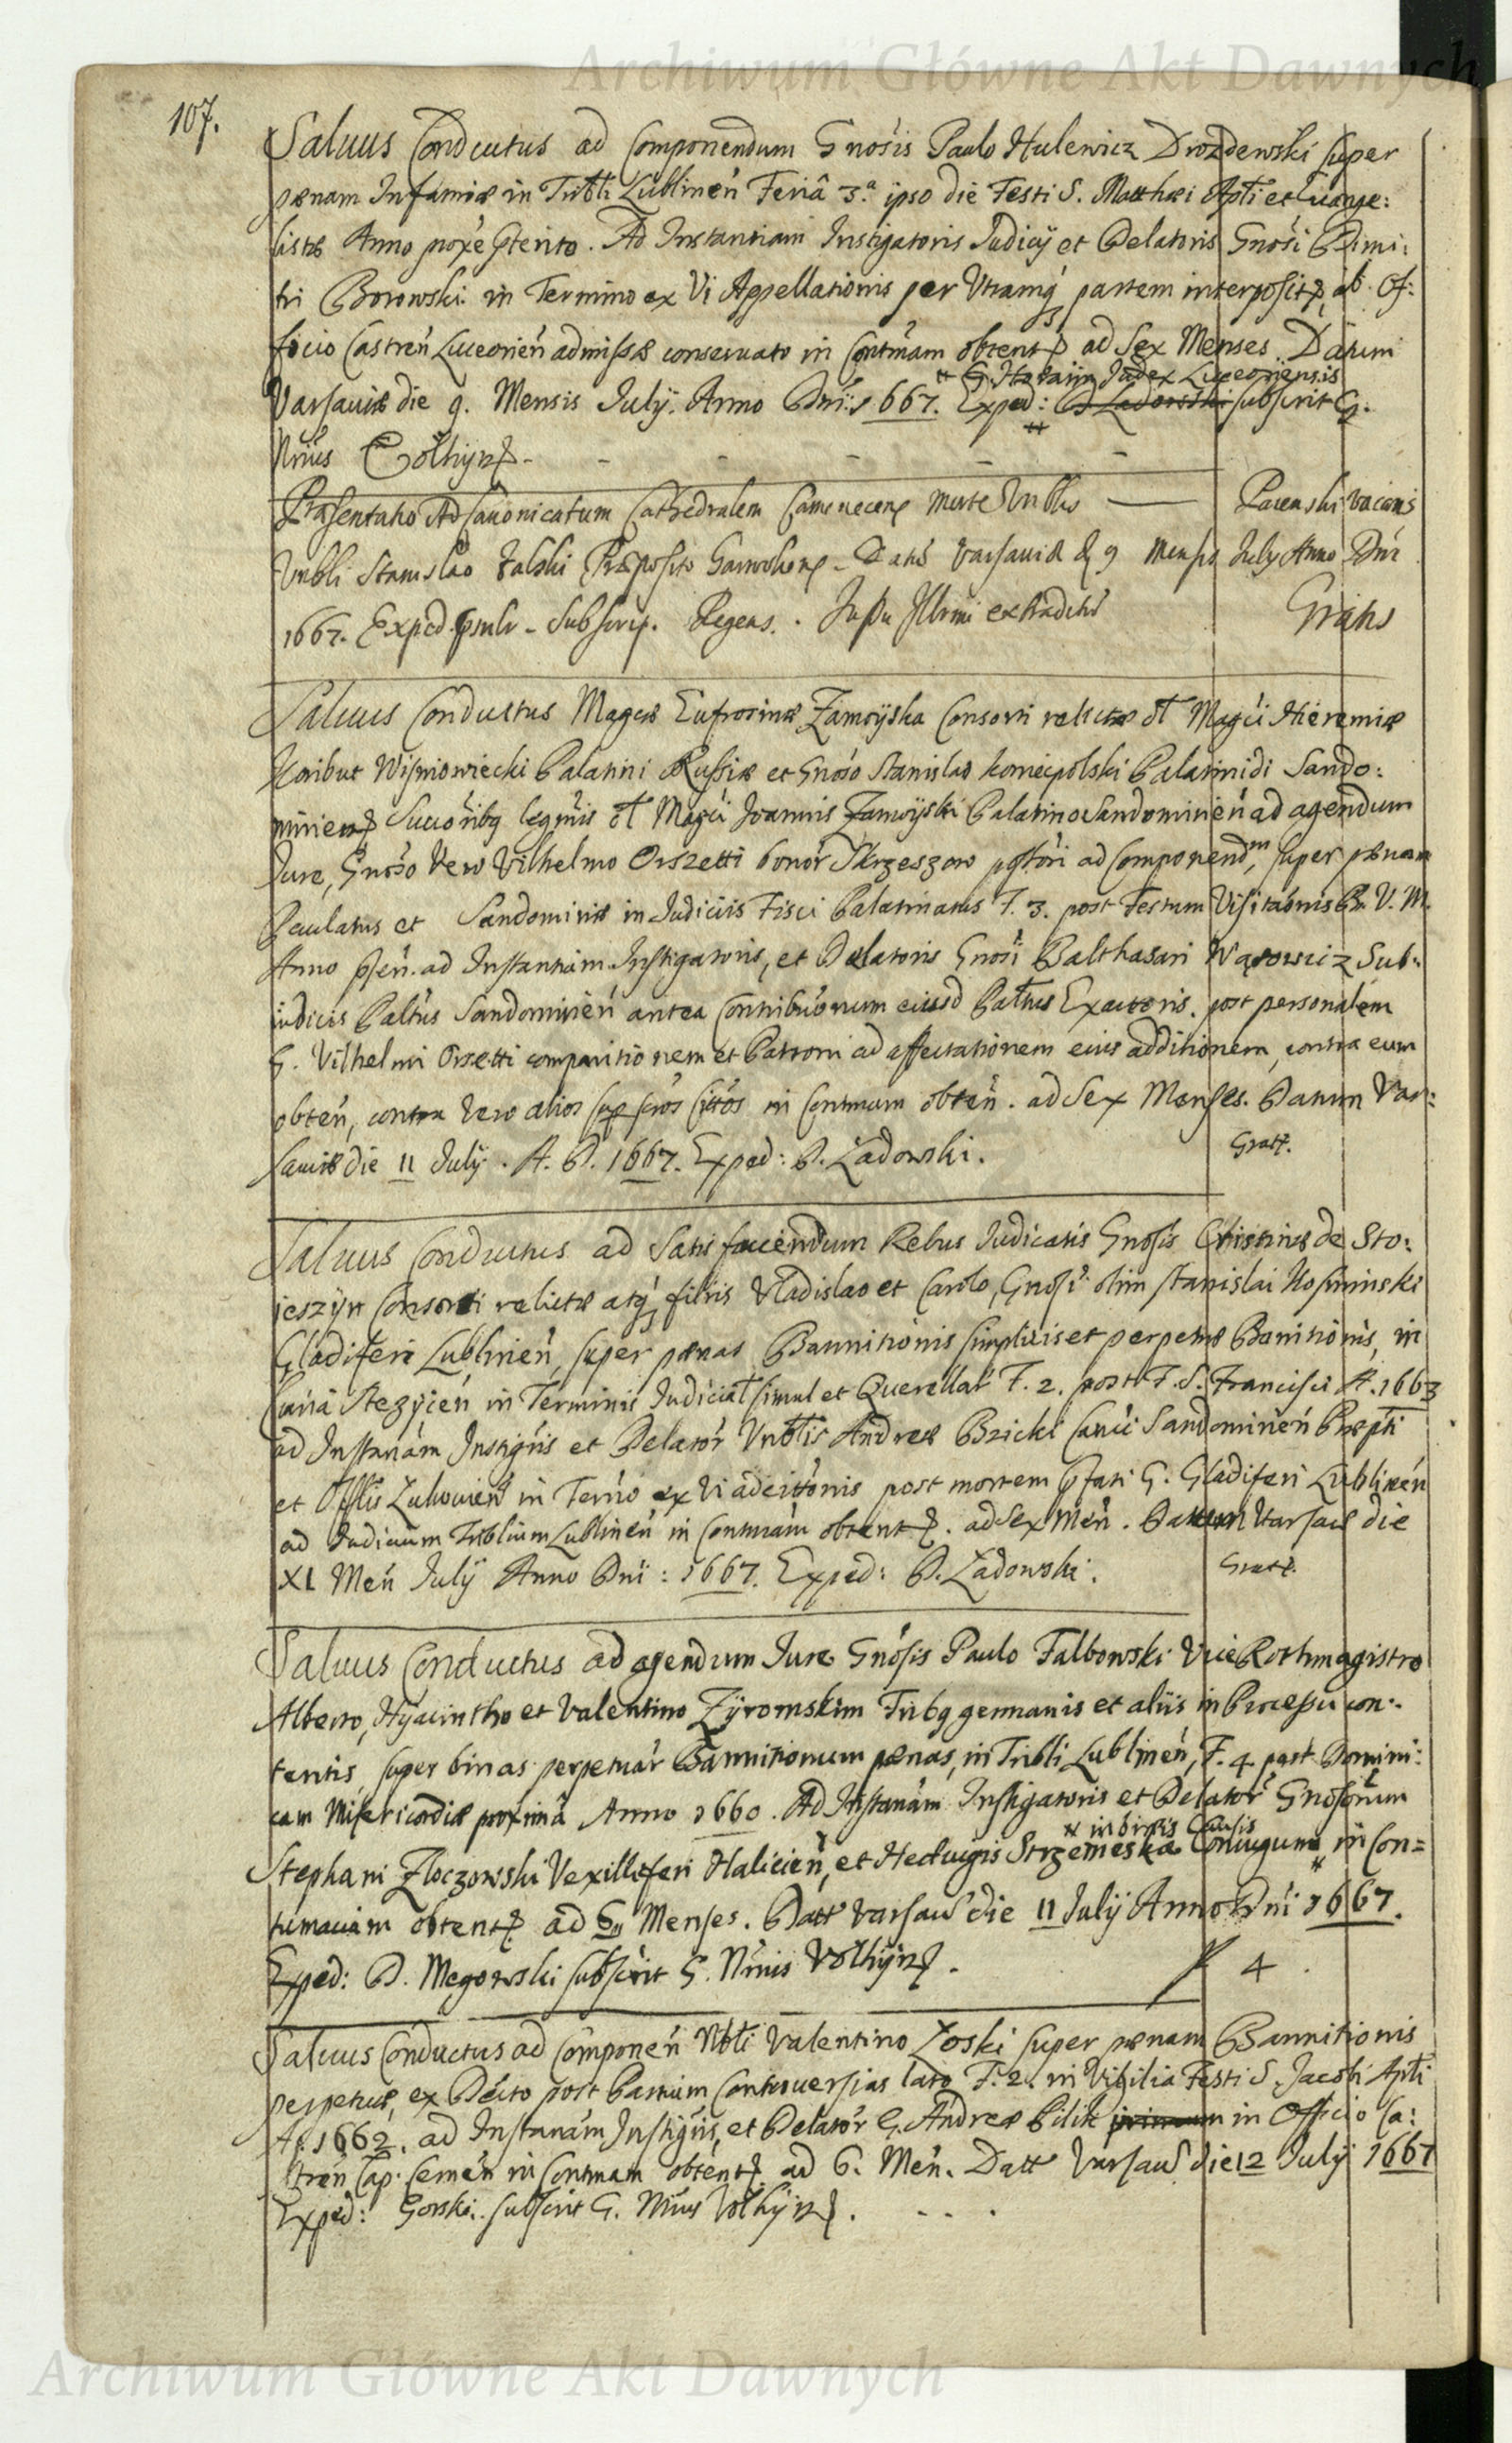 Archiwum Główne Akt Dawnych
107.
Saluus Conductus ad Componendum Gnosis Paulo Hulewicz Drozdewski super
pænam Infamiæ in Tribli Lublinen Feriâ 3.a ipso die Festi S. Matthæi Apli et Euange:
listæ Anno proxe Pterito. Ad Instantiam Instigatoris Judicij et Delatoris Gnosi Dimi:
tri Borowski in Termino ex Vi Appellationis per Utramq partem interpositæ, ab Of:
ficio Castren Luceorien admissæ conseruato in Contmam obtent ad Sex Menses. Datum
G. Judex Luceoriensis
Varsauiæ die 9. Mensis July. Anno Dni: 1667. Exped: D Ladowski subscrit G.
Nrius Volhyn
Præsentatio Ad Canonicatum Cathedralem Camenecen morte Vnblis Vacans
Vnbli Stanislao Præposito Datũ Varsauiæ d 9 Mensis July Anno Dni
1667. Exped. Subscrip. Regens. Jussu Illrmi extraditũ Gratis
Saluus Conductus Magcæ Eufrosinæ Zamoyska Consorti relictæ ol Magci Hieremiæ
Koribut Wisniowiecki Palatini Russiæ et Gnoso Stanislao Koniecpolski Palatinidi Sando:
mirien Succoribq legmis ol Magci Joannis Zamoyski Palatino Sandomirien ad agendum
Jure, Gnoso Vero Vilhelmo Orszetti bonor Skrzeszow pstori ad Componendm, super pænam
Peculatus et Sandomiriæ in Judicijs Fisci Palatinatus F. 3. post Festum Visitaonis B. V. M.
Anno psen. ad Instantiam Instigatoris, et Delatoris Gnosi Balthasari Wąsowicz Sub:
iudicis Paltus Sandomirien antea Contribuonum eiusd Paltus Exactoris. post personalem
G. Vilhelmi Orsetti comparitionem et Patroni ad affectationem eius additionem, contra eum
obten, contra Vero alios supscros Citos in Contmam obten. ad Sex Menses. Datum Var:
sauiæ die 11 July. A. D. 1667. Exped: D. Ladowski. Grat.
Saluus Conductus ad Satisfaciendum Rebus Judicatis Gnosis Christinæ de Sto:
ieszyn Consorti relictæ atq filiis Vladislao et Carolo, Gnosi olim Stanislai Kosminski
Gladiferi Lublinen, super pænas Bannitionis simplicis et perpetuæ Banitionis, in
Curia Stezycen in Terminis Judicial simul et Querellar F. 2. post F. S. Francisci A. 1663
ad Instanam Instigris et Delator Vnblis Andreæ Bzicki Canci Sandomirien Præpti
et Offlis Zukouien in Terno ex Vi adcitonis post mortem Pfati G. Gladiferi Lublinen
ad Judicium Triblium Lublinen in Contmam obtent. ad Sex Men. Datum Varsaæ die
XI Men July Anno Dni: 1667. Exped: D. Ladowski. Grat.
Saluus Conductus ad agendum Jure Gnosis Paulo Falbowski Vice Rothmagistro
Alberto, Hyacintho et Valentino Zyromskim Fribq germanis et aliis in Processu con:
tentis, super binas perpetuar Bannitionum pænas, in Tribli Lublinen, F. 4 post Domini:
cam Misericordiæ proximâ Anno 1660. Ad Instanam Instigatoris et Delator Gnosorum
in binis Causis
Stephani Zloczowski Vexilliferi Halicien, et Heduigis Strzemeska Coniugum, in Con=
tumaciam obtent ad 6 Menses. Datt Varsau die 11 July Anno Dni 1667.
Exped: D. Megowski subscrit G. Nrius Volhyn. 4.
Saluus Conductus ad Componen Nbli Valentino Zoski super pænam Bannitionis
perpetuæ, ex Decto post Partium Controuersias lato F. 2. in Vigilia Festi S. Jacobi Apli
A. 1662. ad Instanam Instigris, et Delator G. Andreæ Bilik in Officio Ca:
stren Cap. Cemen in Contmam obtent ad 6. Men. Datt Varsau die 12 July 1667
Exped: Gorski. subscrit G. Nrius Volhyn.
Archiwum Główne Akt Dawnych